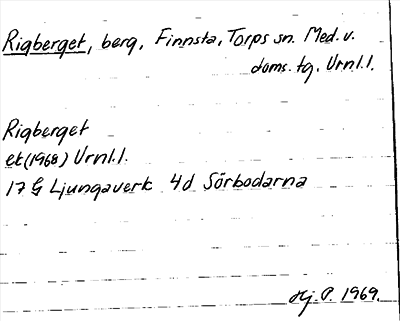 Rigberget, berg, Finnsta, Torps sn. Med. v.
doms. tg. Urnl.1.
Rigberget
et (1968) Urnl.1.
17 G Ljungaverk 4d Sörbodarna
Hj. P. 1969.